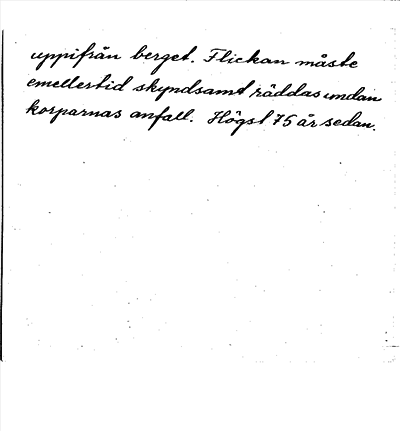 uppifrån berget. Flickan måste
emellertid skyndsamt räddas undan
korparnas anfall. Högst 75 år sedan.